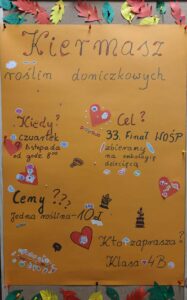 Kiermasz
roślin domiczkowych
Kiedy?
czwartek
listopada
od godz. 8⁰⁰
Cel?
33. Finał WOŚP
zbieramy
na onkologię
dziecięcą
Ceny??
Jedna roślina-10zł
Kto zaprasza?
Klasa 4B